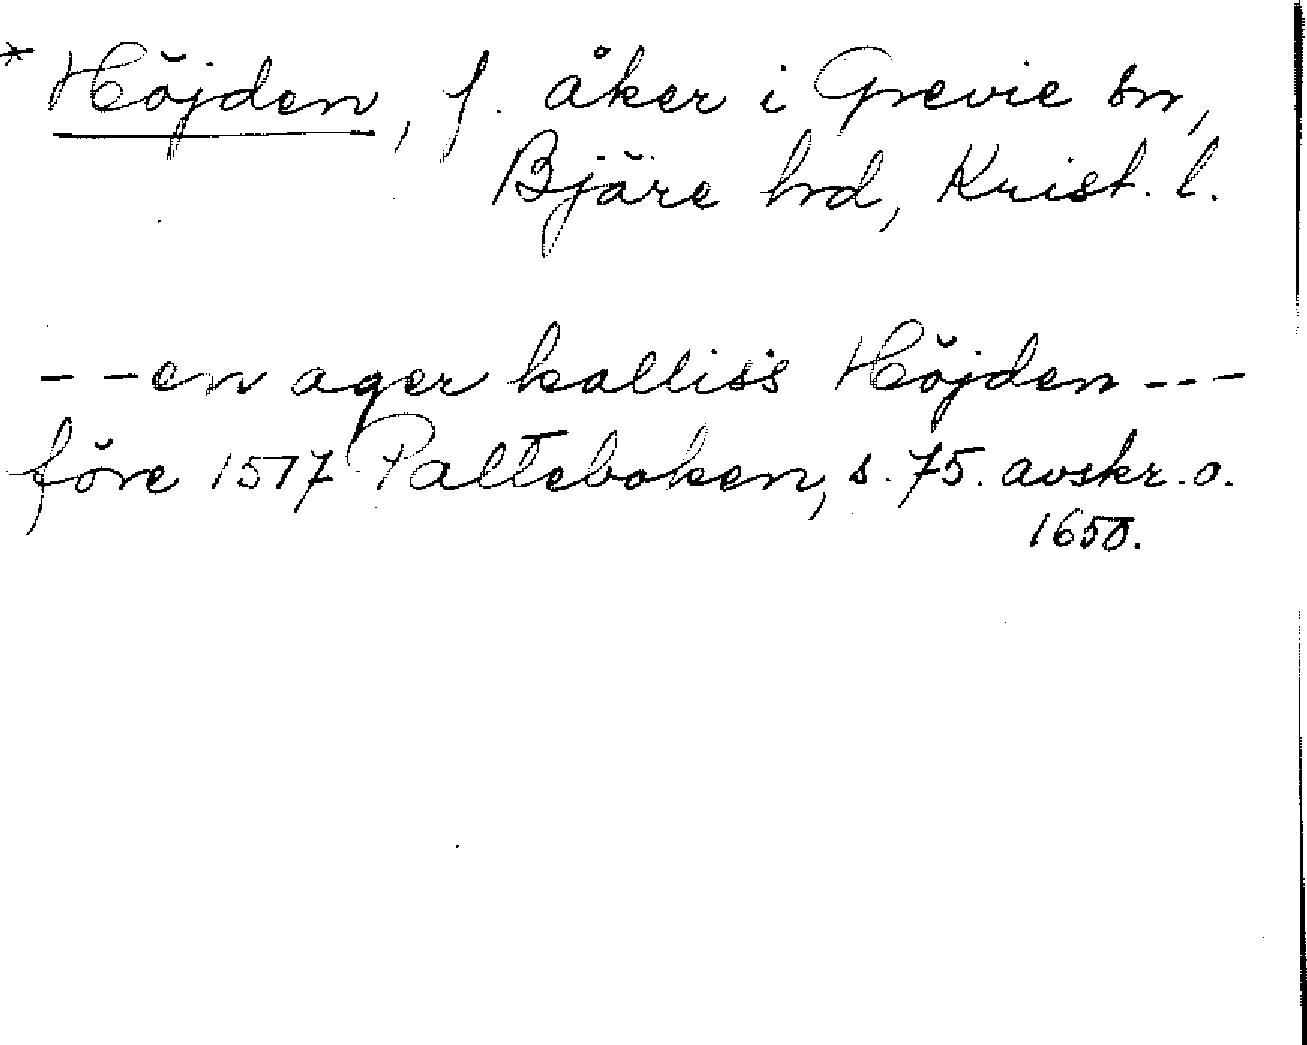 * Höjden, f. åker i Grevie sn,
Bjäre hd, Krist. l.
- - en ager kalliss Höjden - - -
före 1517 Palteboken, s. 75. avskr. o.
1650.